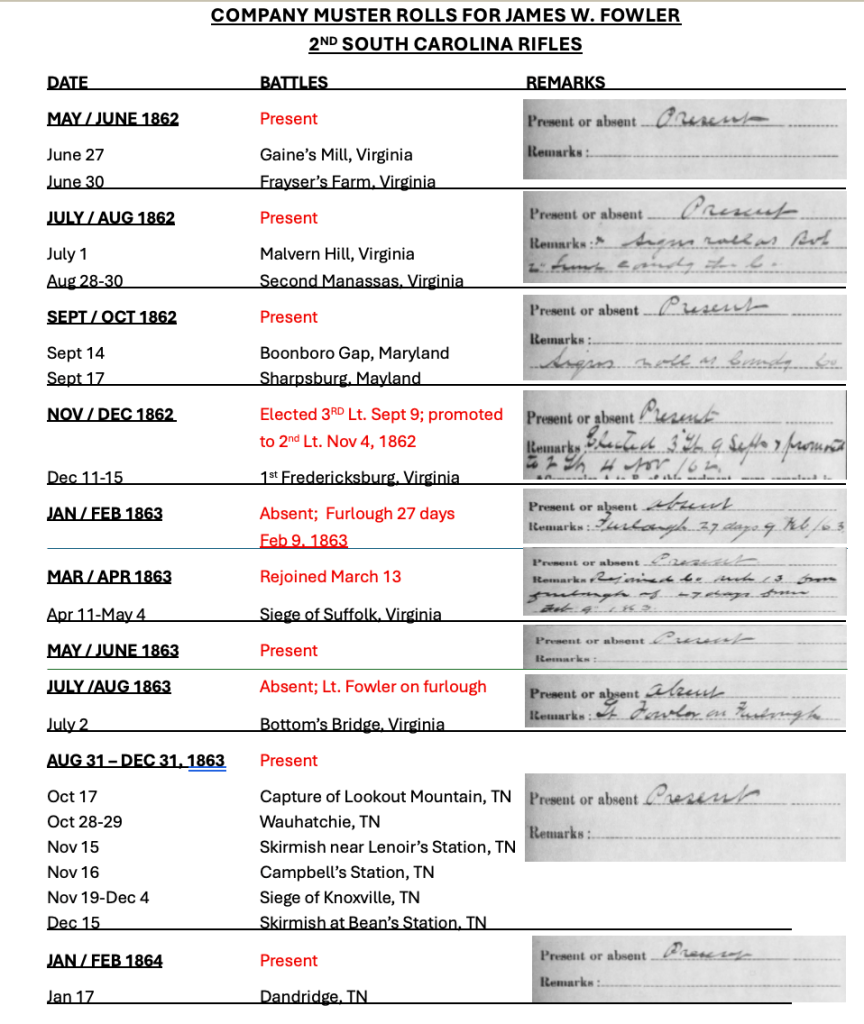 COMPANY MUSTER ROLLS FOR JAMES W. FOWLER
2ND SOUTH CAROLINA RIFLES
DATE BATTLES REMARKS
MAY / JUNE 1862 Present Present or absent Present
June 27 Gaine's Mill, Virginia Remarks:
June 30 Frayser's Farm, Virginia
JULY / AUG 1862 Present Present or absent Present
July 1 Malvern Hill, Virginia Remarks: Signs roll as
Aug 28-30 Second Manassas, Virginia
SEPT / OCT 1862 Present Present or absent Present
Remarks:
Sept 14 Boonboro Gap, Maryland Signs roll as Comdg Co
Sept 17 Sharpsburg, Mayland
NOV / DEC 1862 Elected 3RD Lt. Sept 9; promoted Present or absent Present
to 2nd Lt. Nov 4, 1862 Remarks Elected 3 Lt 9 Sept & promoted
to 2 Lt 4 Nov /62
Dec 11-15 1st Fredericksburg, Virginia
JAN / FEB 1863 Absent; Furlough 27 days Present or absent absent
Feb 9, 1863 Remarks: Furlough 27 days 9 Feb /63
MAR / APR 1863 Rejoined March 13 Present or absent Present
Remarks Rejoined Co. Mch 13 from
furlough of 27 days from
Feb. 9. 1863
Apr 11-May 4 Siege of Suffolk, Virginia
MAY / JUNE 1863 Present Present or absent Present
Remarks:
JULY /AUG 1863 Absent; Lt. Fowler on furlough Present or absent absent
July 2 Bottom's Bridge, Virginia Remarks: Lt Fowler on Furlough
AUG 31 – DEC 31, 1863 Present
Oct 17 Capture of Lookout Mountain, TN Present or absent Present
Oct 28-29 Wauhatchie, TN Remarks:
Nov 15 Skirmish near Lenoir's Station, TN
Nov 16 Campbell's Station, TN
Nov 19-Dec 4 Siege of Knoxville, TN
Dec 15 Skirmish at Bean's Station, TN
JAN / FEB 1864 Present Present or absent Present
Remarks:
Jan 17 Dandridge, TN